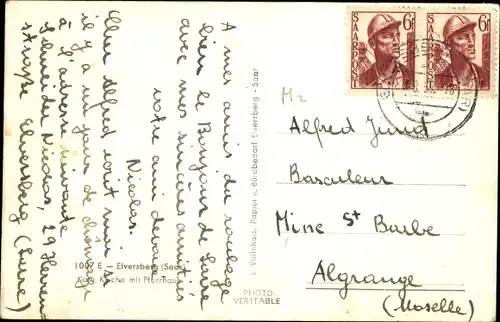 A mes amis du roulage
bien le Bonjour de Sarre
avec mes sincères amitiés
votre ami devoué
Nicolas.
Cher Alfred voit mon
il y a un jour de chomage
à l'adresse suivante
Schneider Nicolas, 29 Herren-
strasse Elversberg (Sarre)
1007 E - Elversberg (Saar)
Kath. Kirche mit Pfarrhaus
Verlag u. Vollehaus. Papier u. Bürobedarf Elversberg - Saar
PHOTO
VERITABLE
SAARPOST
6F
SAARPOST
6F
Mr
Alfred Jund
Basculeur
Mine St Barbe
Algrange
(Moselle)